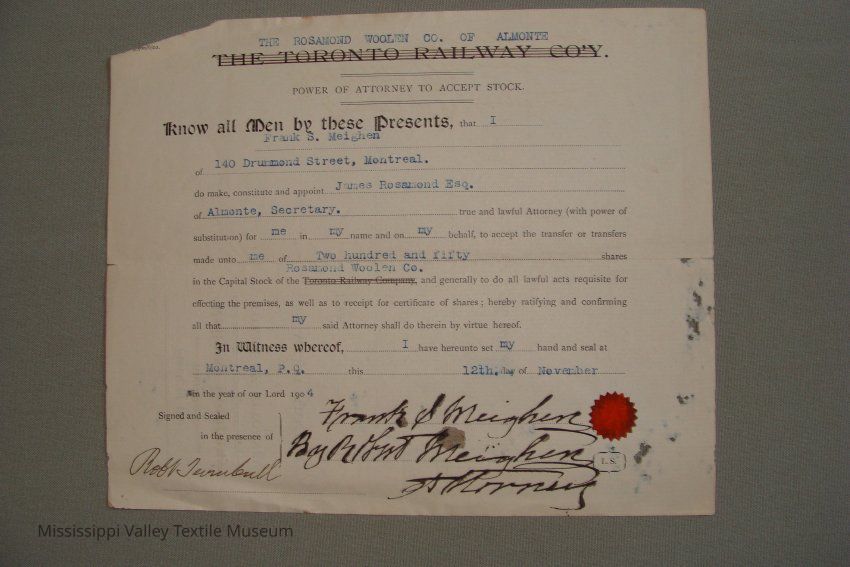 THE ROSAMOND WOOLEN CO. OF ALMONTE
THE TORONTO RAILWAY CO'Y.
POWER OF ATTORNEY TO ACCEPT STOCK.
Know all Men by these Presents, that I
Frank S. Meighen
of 140 Drummond Street, Montreal.
do make, constitute and appoint James Rosamond Esq.
of Almonte, Secretary. true and lawful Attorney (with power of
substitution) for me in my name and on my behalf, to accept the transfer or transfers
made unto me of Two hundred and fifty shares
Rosamond Woolen Co.
in the Capital Stock of the Toronto Railway Company, and generally to do all lawful acts requisite for
effecting the premises, as well as to receipt for certificate of shares; hereby ratifying and confirming
all that my said Attorney shall do therein by virtue hereof.
In Witness whereof, I have hereunto set my hand and seal at
Montreal, P.Q. this 12th. day of November
in the year of our Lord 1904
Signed and Sealed
in the presence of
Frank S Meighen
By Robert Meighen
Attorney
Robt Turnbull
L.S.
Mississippi Valley Textile Museum